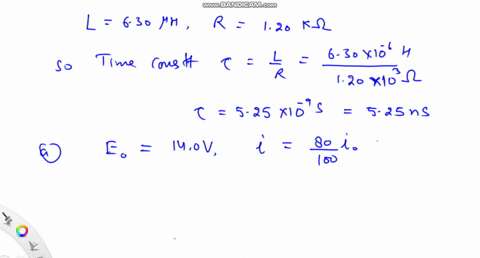 WWW.BANDICAM.COM
L = 6.30 μH, R = 1.20 KΩ
so Time const τ = L/R = 6.30 × 10⁻⁶ H / 1.20 × 10³ Ω
τ = 5.25 × 10⁻⁹ s = 5.25 ns
a) E₀ = 14.0V, i = 80/100 i₀